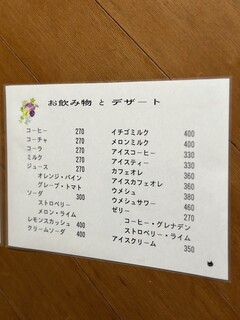 お飲み物 と デザート
コーヒー 270
コーチャ 270
コーラ 270
ミルク 270
ジュース 270
オレンジ・パイン
グレープ・トマト
ソーダ 300
ストロベリー
メロン・ライム
レモンスカッシュ 400
クリームソーダ 400
イチゴミルク 400
メロンミルク 400
アイスコーヒー 330
アイスティー 330
カフェオレ 360
アイスカフェオレ 360
ウメシュ 380
ウメシュサワー 460
ゼリー 270
コーヒー・グレナデン
ストロベリー・ライム
アイスクリーム 350